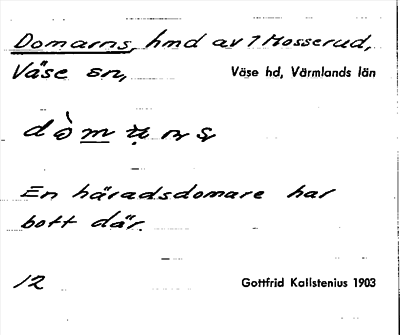 Domarns, hmd av 7 Mosserud,
Väse sn,
Väse hd, Värmlands län
En häradsdomare har
bott där.
12
Gottfrid Kallstenius 1903